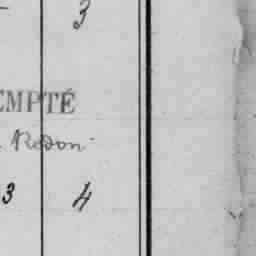 3
EMPTÉ
Redon
3 4